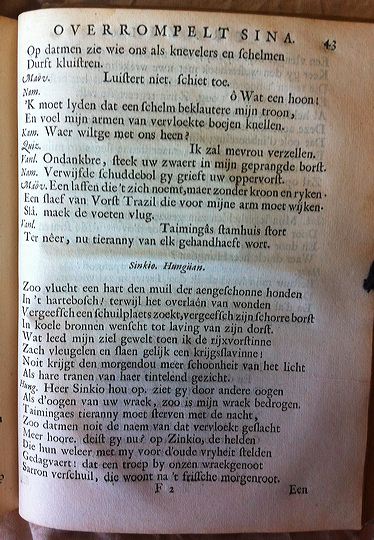 OVERROMPELT SINA. 43
Op datmen zie wie ons als knevelers en schelmen
Durft kluistren.
Madv. Luistert niet. schiet toe.
Nam. ô Wat een hoon!
'K moet lyden dat een schelm beklautere mijn troon,
En voel mijn armen van vervloekte boejen knellen.
Kam. Waer wiltge met ons heen?
Quiz. Ik zal mevrou verzellen.
Vanl. Ondankbre, steek uw zwaert in mijn geprangde borst.
Nam. Verwijfde schuddebol gy grieft uw oppervorst.
Madv. Een laffen die 't zich noemt, maer zonder kroon en ryken.
Een slaef van Vorst Trazil die voor mijne arm moet wijken.
Slâ. maek de voeten vlug.
Vanl. Taimingâs stamhuis stort
Ter nêer, nu tieranny van elk gehandhaeft wort.
Sinkio. Hungüan.
Zoo vlucht een hart den muil der aengeschonne honden
In 't hartebosch! terwijl het overlaên van wonden
Vergeefsch een schuilplaets zoekt, vergeefsch zijn schorre borst
In koele bronnen wenscht tot laving van zijn dorst.
Wat leed mijn ziel gewelt toen ik de rijxvorstinne
Zach vleugelen en slaen gelijk een krijgsslavinne!
Noit krijgt den morgendou meer schoonheit van het licht
Als hare tranen van haer tintelend gezicht.
Hung. Heer Sinkio hou op. ziet gy door andere oogen
Als d'oogen van uw wraek, zoo is mijn wraek bedrogen.
Taimingaes tieranny moet sterven met de nacht,
Zoo datmen noit de naem van dat vervloekt geslacht
Meer hoore. deist gy nu? op Zinkio, de helden
Die hun weleer met my voor d'oude vryheit stelden
Gedagvaert: dat een troep by onzen wraekgenoot
Sarron verschuil, die woont na 't frissche morgenroot.
F 2 Een